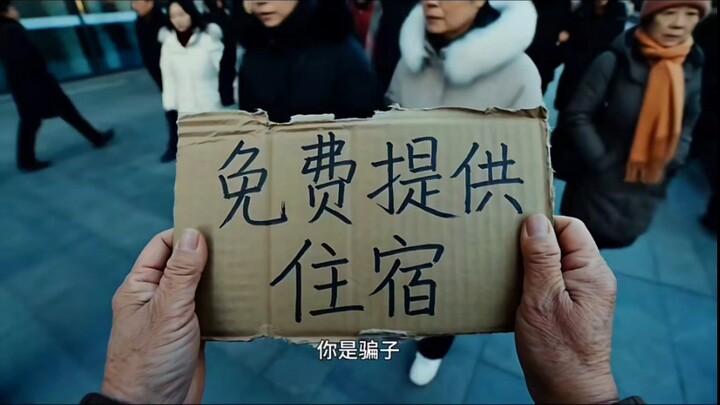 免费提供
住宿
你是骗子